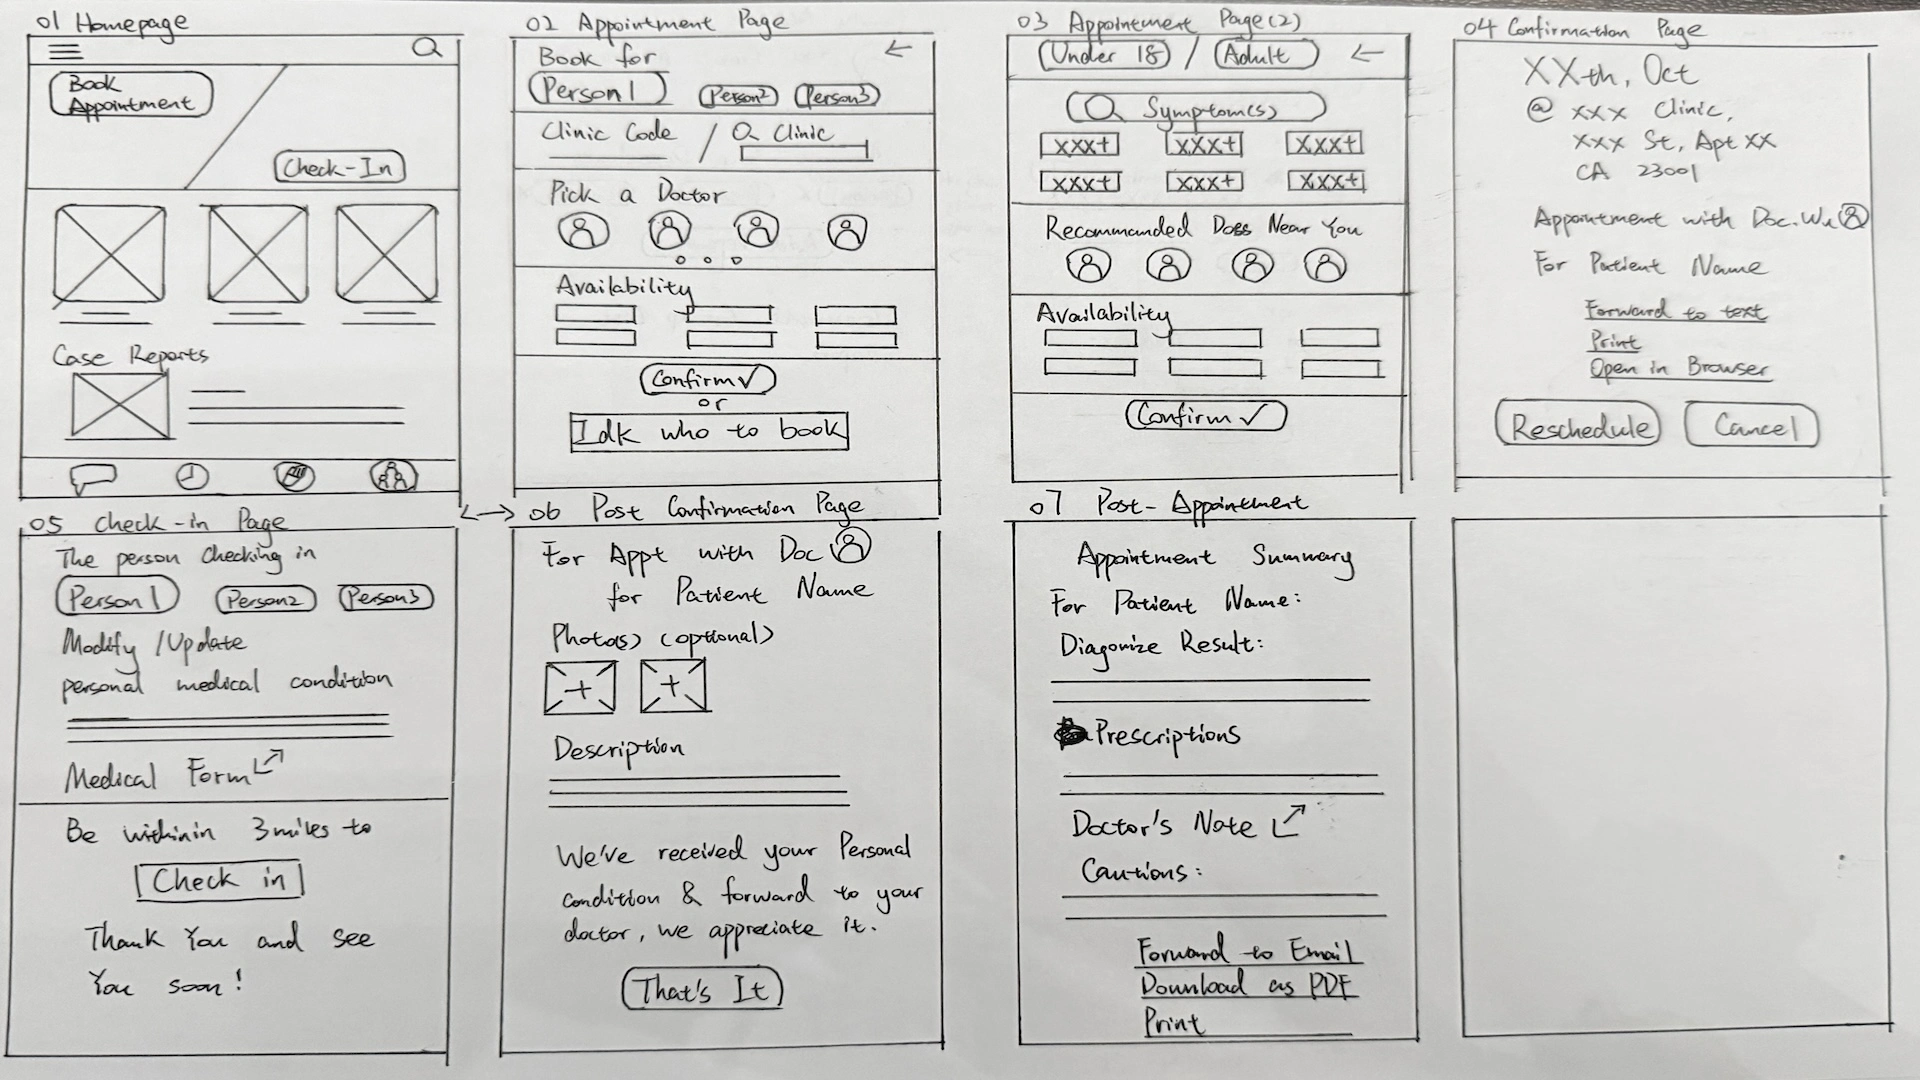 01 Homepage
Book
Appointment
Check-In
Case Reports
02 Appointment Page
Book for
Person1 Person2 Person3
Clinic Code / Clinic
Pick a Doctor
Availability
Confirm ✓
or
Idk who to book
03 Appointment Page(2)
Under 18 / Adult
Symptom(s)
xxx+ xxx+ xxx+
xxx+ xxx+ xxx+
Recommanded Docs Near You
Availability
Confirm ✓
04 Confirmation Page
XXth, Oct
@ xxx Clinic,
xxx St, Apt xx
CA 23001
Appointment with Doc.Wu
For Patient Name
Forward to text
Print
Open in Browser
Reschedule Cancel
05 Check-in Page
The person checking in
Person1 Person2 Person3
Modify /Update
personal medical condition
Medical Form
Be withinin 3miles to
Check in
Thank You and see
You soon!
06 Post Confirmation Page
For Appt with Doc
for Patient Name
Photo(s) (optional)
Description
We've received your Personal
condition & forward to your
doctor, we appreciate it.
That's It
07 Post-Appointment
Appointment Summary
For Patient Name:
Diagonize Result:
Prescriptions
Doctor's Note
Cautions:
Forward to Email
Download as PDF
Print